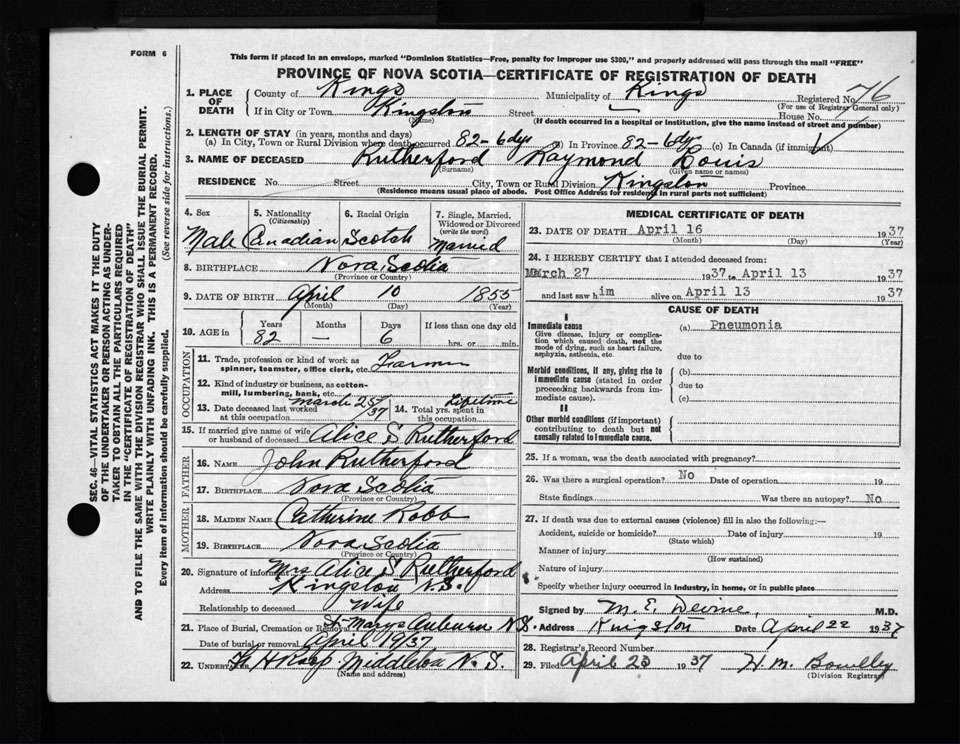 FORM 6
This form if placed in an envelope, marked "Dominion Statistics—Free, penalty for improper use $300," and properly addressed will pass through the mail "FREE"
PROVINCE OF NOVA SCOTIA—CERTIFICATE OF REGISTRATION OF DEATH
1. PLACE OF DEATH
County of Kings Municipality of Kings Registered No. 76
(For use of Registrar General only)
If in City or Town Kingston Street House No.
(Name) (If death occurred in a hospital or institution, give the name instead of street and number)
2. LENGTH OF STAY (in years, months and days)
(a) In City, Town or Rural Division where death occurred 82-6dys (b) In Province 82-6dys (c) In Canada (if immigrant)
3. NAME OF DECEASED Rutherford Raymond Louis
(Surname) (Given name or names)
RESIDENCE No. Street City, Town or Rural Division Kingston Province
(Residence means usual place of abode. Post Office Address for residents in rural parts not sufficient)
4. Sex
Male
5. Nationality
(Citizenship)
Canadian
6. Racial Origin
Scotch
7. Single, Married, Widowed or Divorced
(write the word)
Married
8. BIRTHPLACE Nova Scotia
(Province or Country)
9. DATE OF BIRTH April 10 1855
(Month) (Day) (Year)
10. AGE in Years Months Days If less than one day old
82 — 6 hrs. or min.
OCCUPATION
11. Trade, profession or kind of work as spinner, teamster, office clerk, etc. Farmer
12. Kind of industry or business, as cotton-mill, lumbering, bank, etc.
13. Date deceased last worked at this occupation March 25/37
14. Total yrs. spent in this occupation Lifetime
15. If married give name of wife or husband of deceased Alice S Rutherford
FATHER
16. NAME John Rutherford
17. BIRTHPLACE Nova Scotia
(Province or Country)
MOTHER
18. MAIDEN NAME Catherine Robb
19. BIRTHPLACE Nova Scotia
(Province or Country)
20. Signature of informant Mrs Alice S Rutherford
Address Kingston N.S.
Relationship to deceased Wife
21. Place of Burial, Cremation or Removal St Marys Auburn N.S.
Date of burial or removal April 1937
22. UNDERTAKER Middleton N.S.
(Name and address)
MEDICAL CERTIFICATE OF DEATH
23. DATE OF DEATH April 16 1937
(Month) (Day) (Year)
24. I HEREBY CERTIFY that I attended deceased from:
March 27 1937 to April 13 1937
and last saw him alive on April 13 1937
CAUSE OF DEATH
I
Immediate cause (a) Pneumonia
Give disease, injury or complication which caused death, not the mode of dying, such as heart failure, asphyxia, asthenia, etc.
due to
Morbid conditions, if any, giving rise to immediate cause (stated in order proceeding backwards from immediate cause).
(b)
due to
(c)
II
Other morbid conditions (if important) contributing to death but not causally related to immediate cause.
25. If a woman, was the death associated with pregnancy?
26. Was there a surgical operation? No Date of operation 19
State findings Was there an autopsy? No
27. If death was due to external causes (violence) fill in also the following:—
Accident, suicide or homicide? Date of injury 19
(State which)
Manner of injury
(How sustained)
Nature of injury
Specify whether injury occurred in industry, in home, or in public place
Signed by M. E. Devine M.D.
Address Kingston Date April 22 1937
28. Registrar's Record Number
29. Filed April 23 1937 H. M.
(Division Registrar)
SEC. 46—VITAL STATISTICS ACT MAKES IT THE DUTY
OF THE UNDERTAKER OR PERSON ACTING AS UNDER-
TAKER TO OBTAIN ALL THE PARTICULARS REQUIRED
IN THE "CERTIFICATE OF REGISTRATION OF DEATH"
AND TO FILE THE SAME WITH THE DIVISION REGISTRAR WHO SHALL ISSUE THE BURIAL PERMIT.
WRITE PLAINLY WITH UNFADING INK. THIS IS A PERMANENT RECORD.
Every item of information should be carefully supplied. (See reverse side for instructions.)